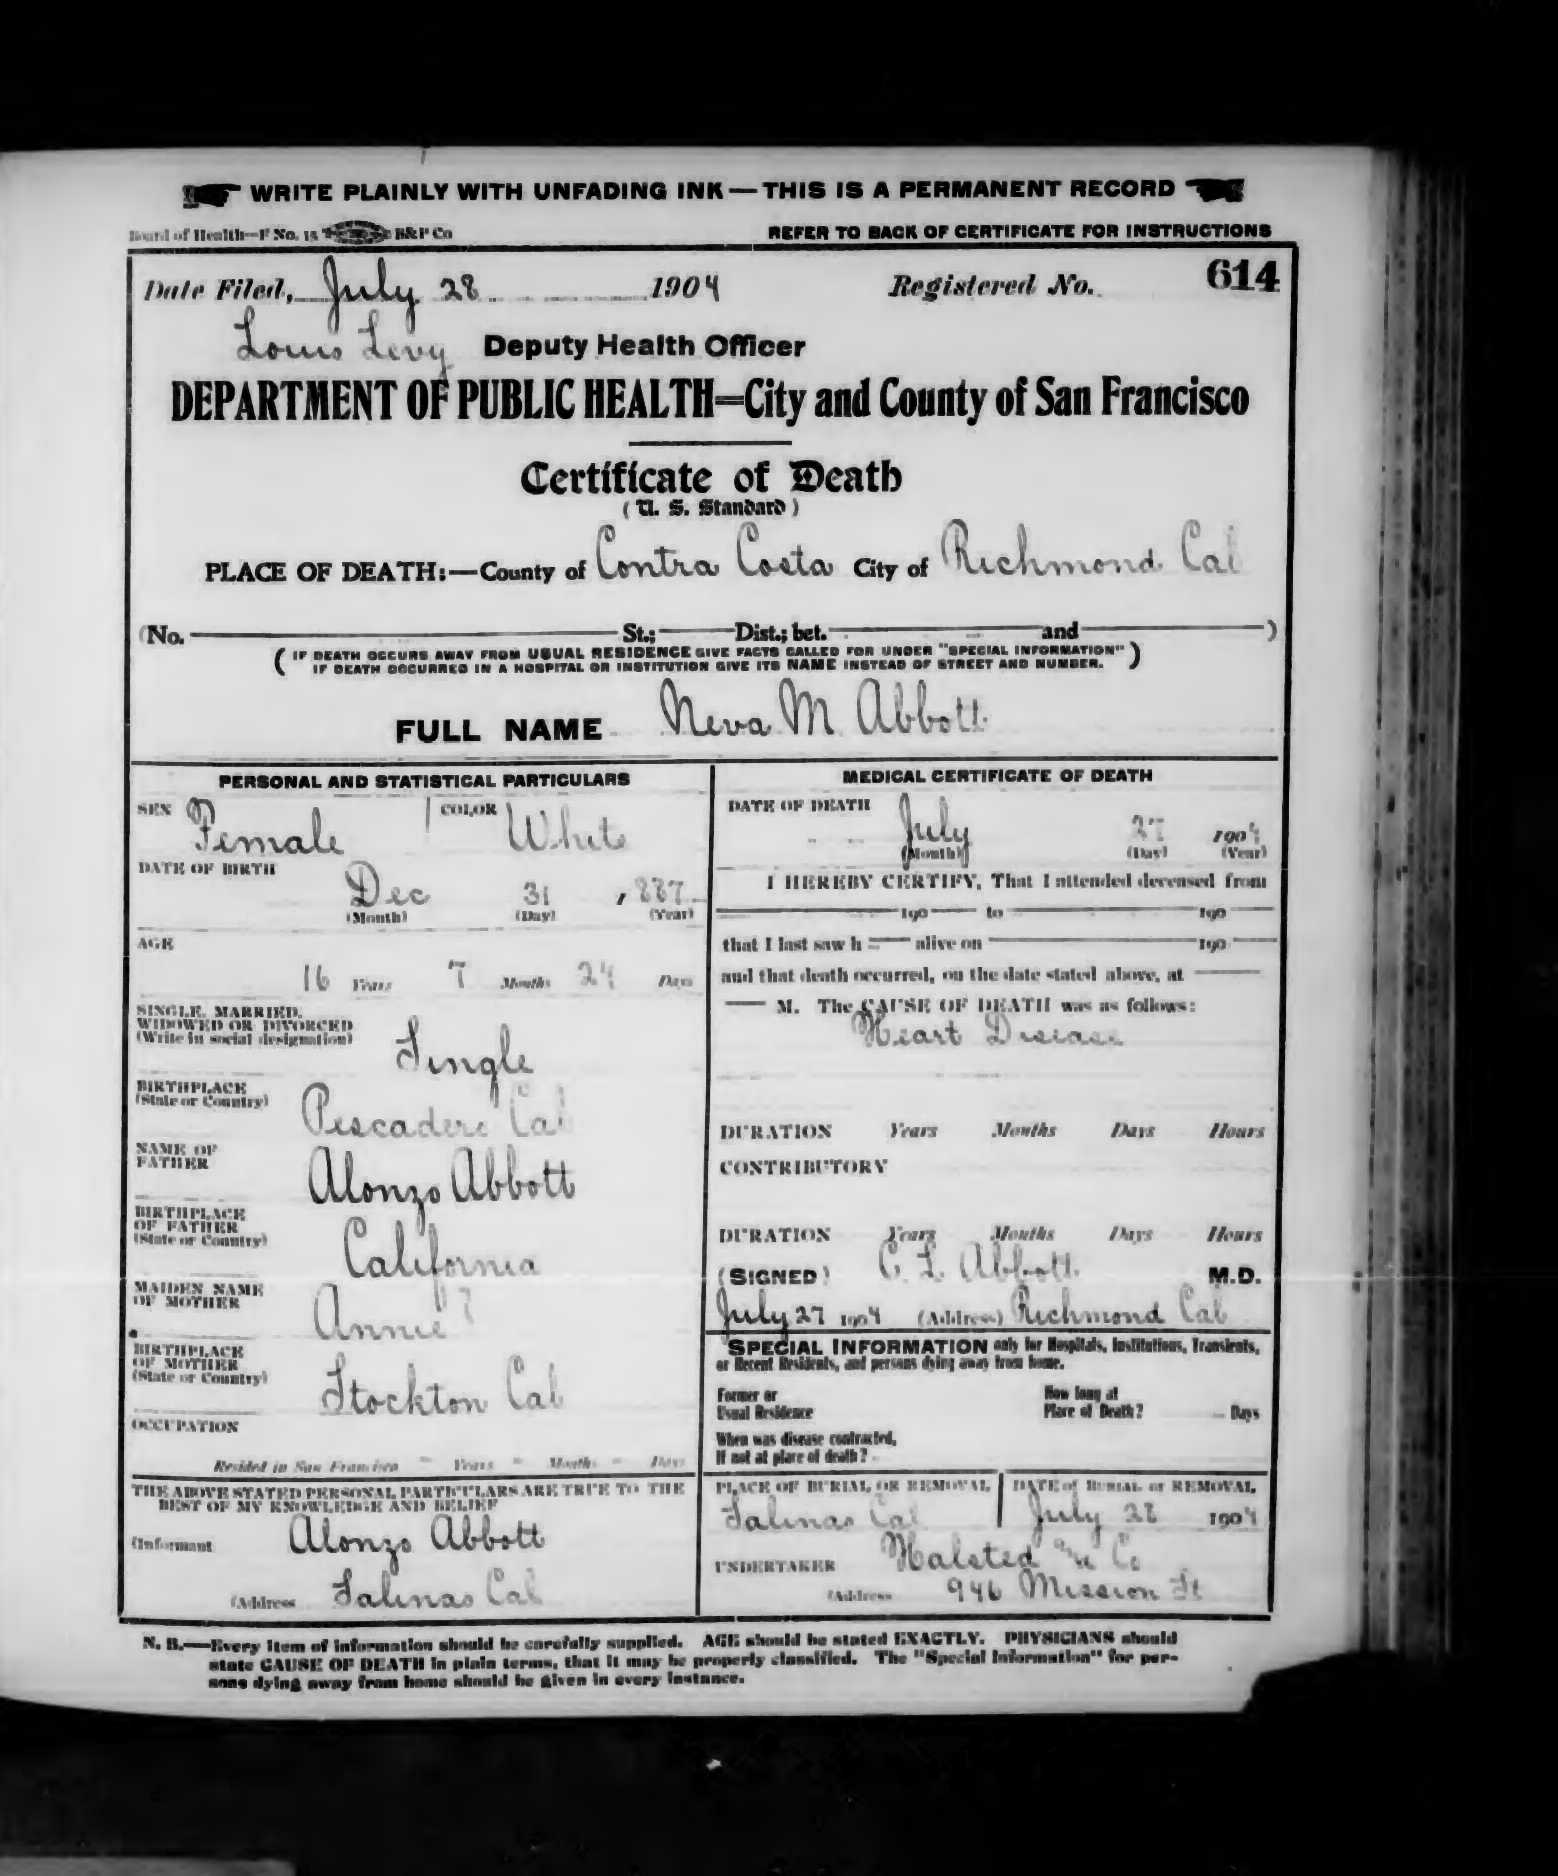 WRITE PLAINLY WITH UNFADING INK — THIS IS A PERMANENT RECORD
Board of Health—F No. 15 B&P Co REFER TO BACK OF CERTIFICATE FOR INSTRUCTIONS
Date Filed, July 28 1904 Registered No. 614
Louis Levy Deputy Health Officer
DEPARTMENT OF PUBLIC HEALTH=City and County of San Francisco
Certificate of Death
(U. S. Standard)
PLACE OF DEATH:—County of Contra Costa City of Richmond Cal
(No. St.; Dist.; bet. and )
(IF DEATH OCCURS AWAY FROM USUAL RESIDENCE GIVE FACTS CALLED FOR UNDER "SPECIAL INFORMATION"
IF DEATH OCCURRED IN A HOSPITAL OR INSTITUTION GIVE ITS NAME INSTEAD OF STREET AND NUMBER.)
FULL NAME Neva M. Abbott
PERSONAL AND STATISTICAL PARTICULARS
SEX Female COLOR White
DATE OF BIRTH
Dec 31 , 887
(Month) (Day) (Year)
AGE
16 Years 7 Months 24 Days
SINGLE, MARRIED,
WIDOWED OR DIVORCED
(Write in social designation)
Single
BIRTHPLACE
(State or Country)
Pescadero Cal
NAME OF
FATHER
Alonzo Abbott
BIRTHPLACE
OF FATHER
(State or Country)
California
MAIDEN NAME
OF MOTHER
Annie ?
BIRTHPLACE
OF MOTHER
(State or Country)
Stockton Cal
OCCUPATION
Resided in San Francisco - Years - Months - Days
THE ABOVE STATED PERSONAL PARTICULARS ARE TRUE TO THE
BEST OF MY KNOWLEDGE AND BELIEF
(Informant Alonzo Abbott
(Address Salinas Cal
MEDICAL CERTIFICATE OF DEATH
DATE OF DEATH
July 27 1904
(Month) (Day) (Year)
I HEREBY CERTIFY, That I attended deceased from
190 to 190
that I last saw h alive on 190
and that death occurred, on the date stated above, at
M. The CAUSE OF DEATH was as follows:
Heart Disease
DURATION Years Months Days Hours
CONTRIBUTORY
DURATION Years Months Days Hours
(SIGNED) C. L. Abbott M.D.
July 27 1904 (Address) Richmond Cal
SPECIAL INFORMATION only for Hospitals, Institutions, Transients,
or Recent Residents, and persons dying away from home.
Former or
Usual Residence
How long at
Place of Death? Days
When was disease contracted,
If not at place of death?
PLACE OF BURIAL OR REMOVAL
Salinas Cal
DATE of BURIAL or REMOVAL
July 28 1904
UNDERTAKER Halsted and Co
(Address 946 Mission St
N. B.—Every item of information should be carefully supplied. AGE should be stated EXACTLY. PHYSICIANS should
state CAUSE OF DEATH in plain terms, that it may be properly classified. The "Special Information" for per-
sons dying away from home should be given in every instance.